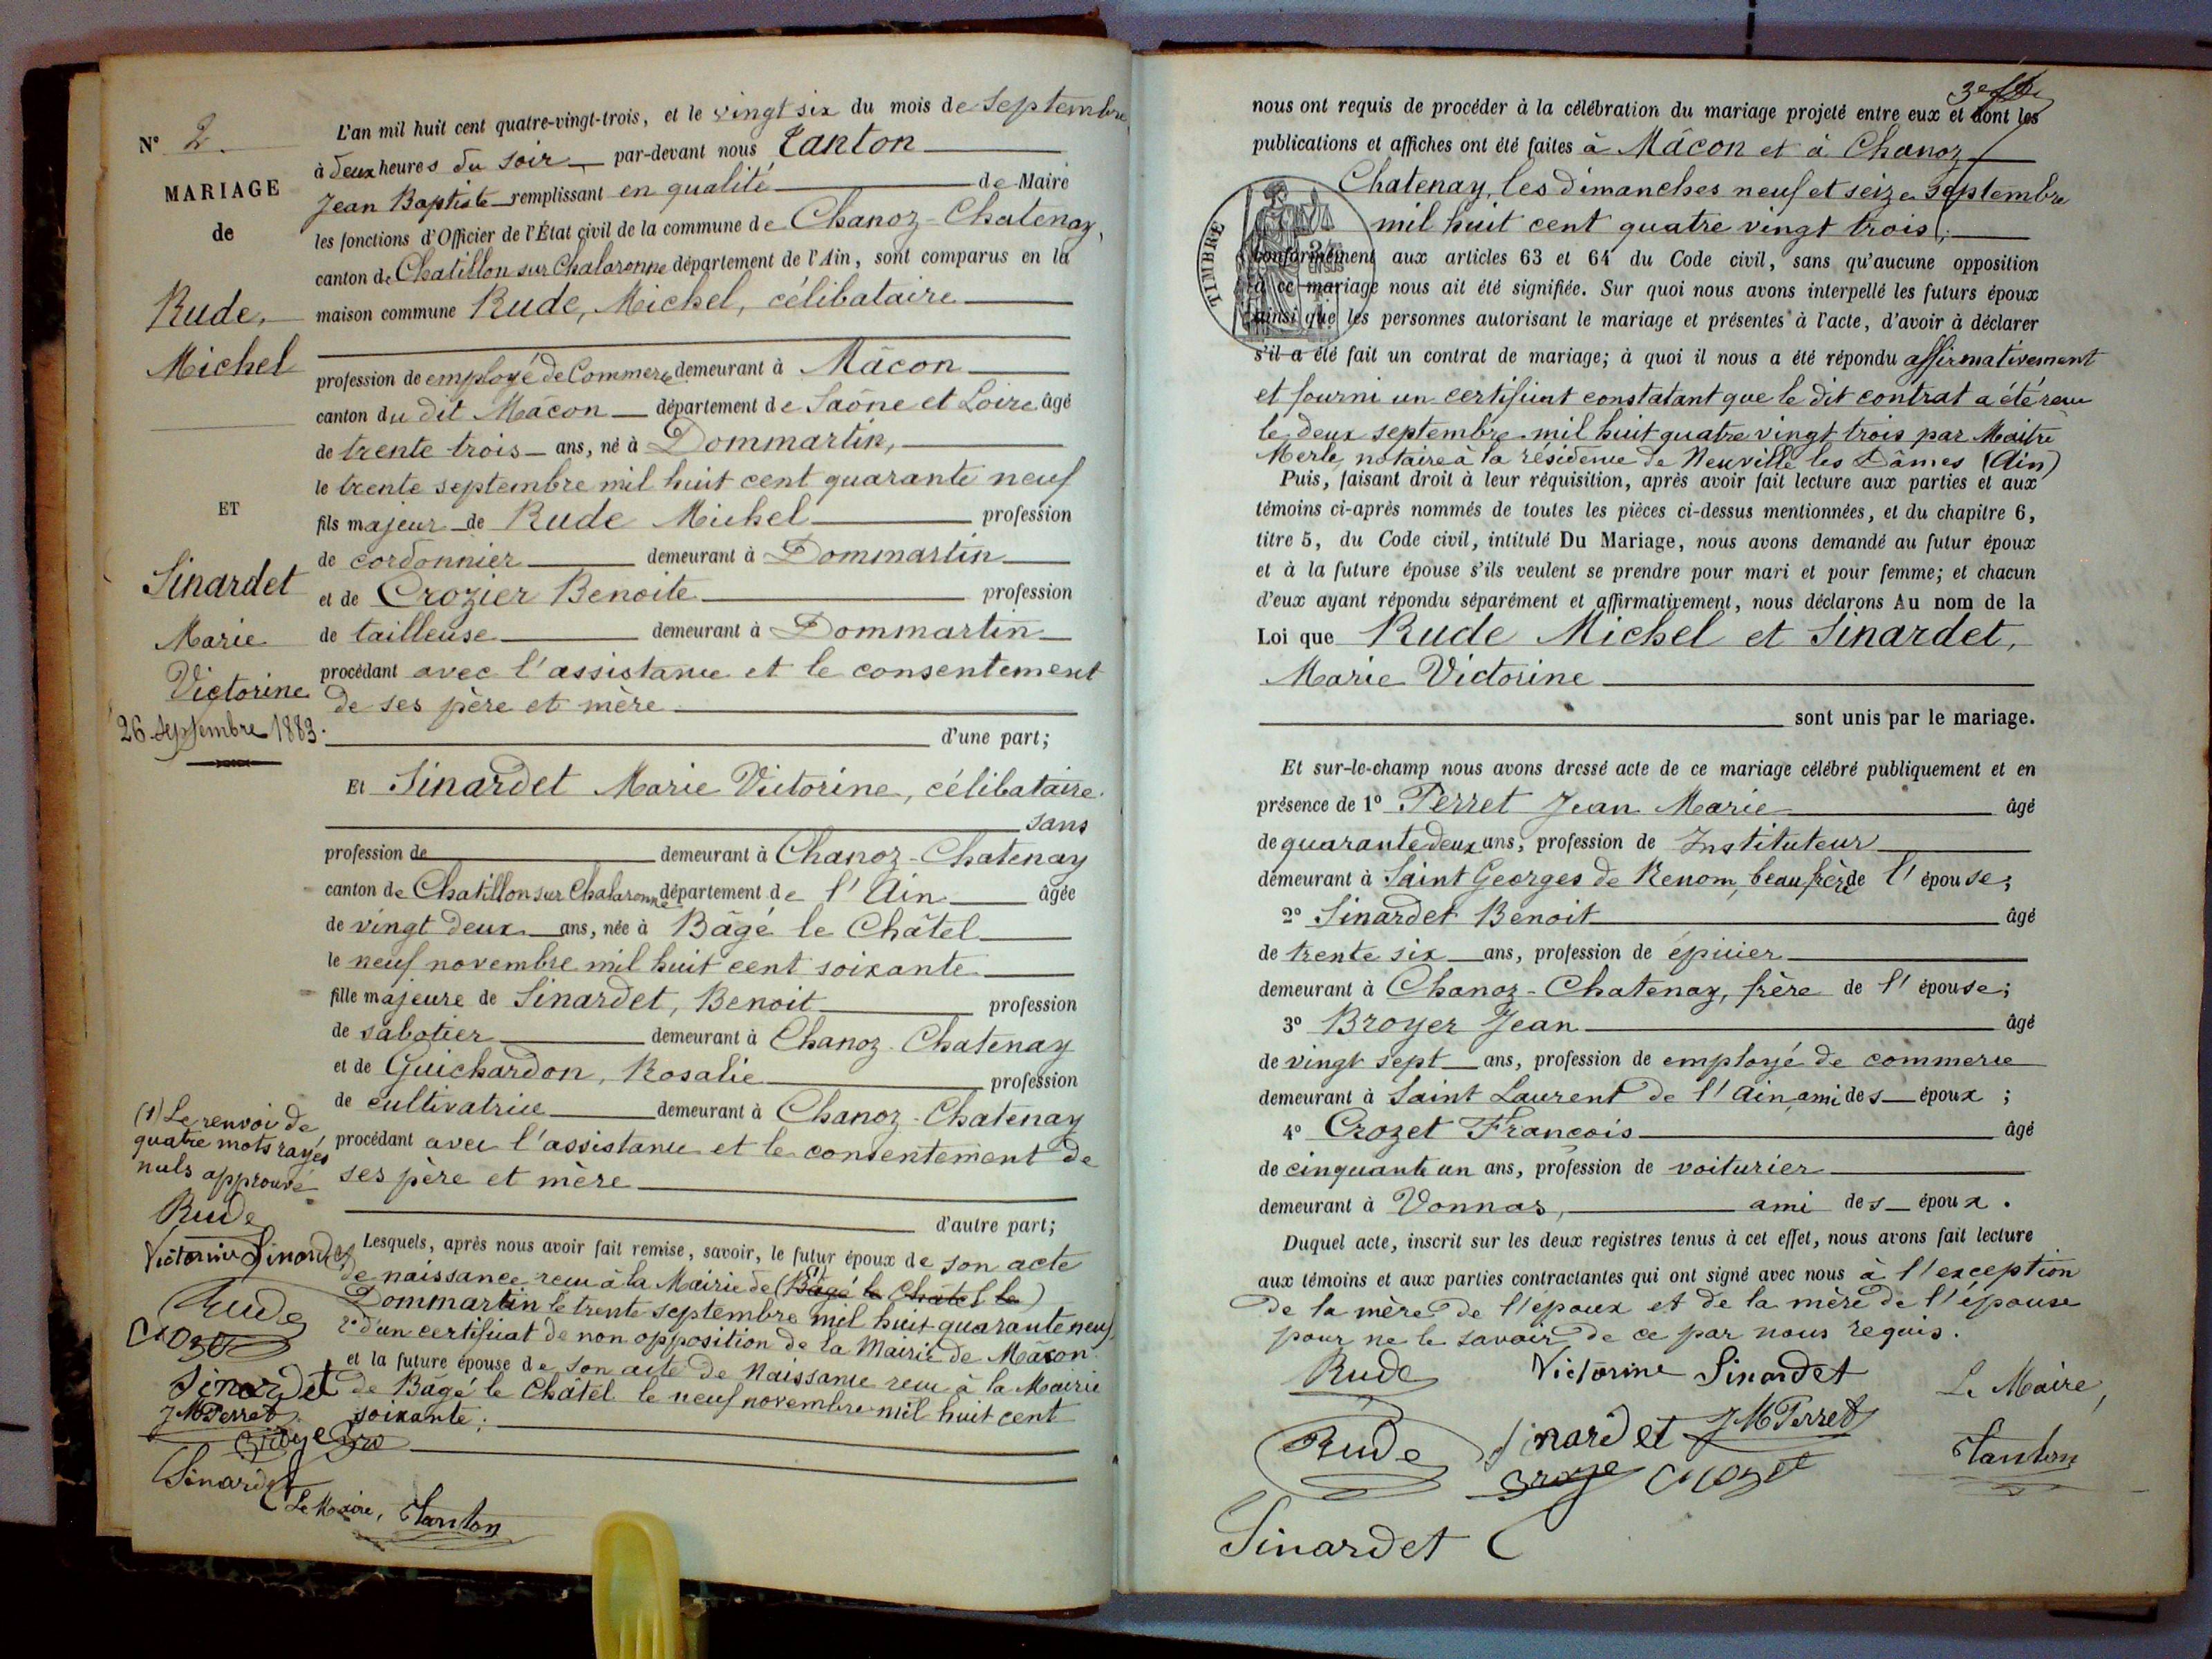 N° 2.
MARIAGE
de
Rude,
Michel
ET
Sinardet
Marie
Victorine
26 septembre 1883.
L'an mil huit cent quatre-vingt-trois, et le vingt six du mois de septembre
à deux heures du soir par-devant nous Tanton
Jean Baptiste remplissant en qualité de Maire
les fonctions d'Officier de l'État civil de la commune de Chanoz-Chatenay,
canton de Chatillon sur Chalaronne département de l'Ain, sont comparus en la
maison commune Rude, Michel, célibataire
profession de employé de Commerce demeurant à Mâcon
canton du dit Mâcon département de Saône et Loire âgé
de trente trois ans, né à Dommartin,
le trente septembre mil huit cent quarante neuf
fils majeur de Rude Michel profession
de cordonnier demeurant à Dommartin
et de Crozier Benoite profession
de tailleuse demeurant à Dommartin
procédant avec l'assistance et le consentement
de ses père et mère
d'une part;
Et Sinardet Marie Victorine, célibataire.
sans
profession de demeurant à Chanoz-Chatenay
canton de Chatillon sur Chalaronne département de l'Ain âgée
de vingt deux ans, née à Bâgé le Châtel
le neuf novembre mil huit cent soixante
fille majeure de Sinardet, Benoit profession
de sabotier demeurant à Chanoz-Chatenay
et de Guichardon, Rosalie profession
de cultivatrice demeurant à Chanoz-Chatenay
procédant avec l'assistance et le consentement de
ses père et mère
d'autre part;
Lesquels, après nous avoir fait remise, savoir, le futur époux de son acte
de naissance reçu à la Mairie de (1) (Bâgé le Châtel le)
Dommartin le trente septembre mil huit quarante neuf,
2° d'un certificat de non opposition de la Mairie de Mâcon.
et la future épouse de son acte de Naissance reçu à la Mairie
de Bâgé le Châtel le neuf novembre mil huit cent
soixante;
(1) Le renvoi de
quatre mots rayés
nuls approuvé
Rude
Victorine Sinardet
Rude
Crozet
Sinardet
JM Perret
Broyer
Sinardet
Le Maire, Tanton
nous ont requis de procéder à la célébration du mariage projeté entre eux et dont les
publications et affiches ont été faites à Mâcon et à Chanoz
Chatenay, les dimanches neuf et seize septembre
mil huit cent quatre vingt trois;
TIMBRE
conformément aux articles 63 et 64 du Code civil, sans qu'aucune opposition
à ce mariage nous ait été signifiée. Sur quoi nous avons interpellé les futurs époux
ainsi que les personnes autorisant le mariage et présentes à l'acte, d'avoir à déclarer
s'il a été fait un contrat de mariage; à quoi il nous a été répondu affirmativement
et fourni un certificat constatant que le dit contrat a été reçu
le deux septembre mil huit quatre vingt trois par Maître
Merle, notaire à la résidence de Neuville les Dâmes (Ain)
Puis, faisant droit à leur réquisition, après avoir fait lecture aux parties et aux
témoins ci-après nommés de toutes les pièces ci-dessus mentionnées, et du chapitre 6,
titre 5, du Code civil, intitulé Du Mariage, nous avons demandé au futur époux
et à la future épouse s'ils veulent se prendre pour mari et pour femme; et chacun
d'eux ayant répondu séparément et affirmativement, nous déclarons Au nom de la
Loi que Rude Michel et Sinardet,
Marie Victorine
sont unis par le mariage.
Et sur-le-champ nous avons dressé acte de ce mariage célébré publiquement et en
présence de 1° Perret Jean Marie âgé
de quarante deux ans, profession de Instituteur
demeurant à Saint Georges de Renom, beau frère de l'épouse;
2° Sinardet Benoit âgé
de trente six ans, profession de épicier
demeurant à Chanoz-Chatenay, frère de l'épouse;
3° Broyer Jean âgé
de vingt sept ans, profession de employé de commerce
demeurant à Saint Laurent de l'Ain, ami des époux;
4° Crozet François âgé
de cinquante un ans, profession de voiturier
demeurant à Vonnas, ami des époux.
Duquel acte, inscrit sur les deux registres tenus à cet effet, nous avons fait lecture
aux témoins et aux parties contractantes qui ont signé avec nous à l'exception
de la mère de l'époux et de la mère de l'épouse
pour ne le savoir de ce par nous requis.
Rude Victorine Sinardet Le Maire,
Rude Sinardet JM Perret Tanton
Broyer Crozet
Sinardet